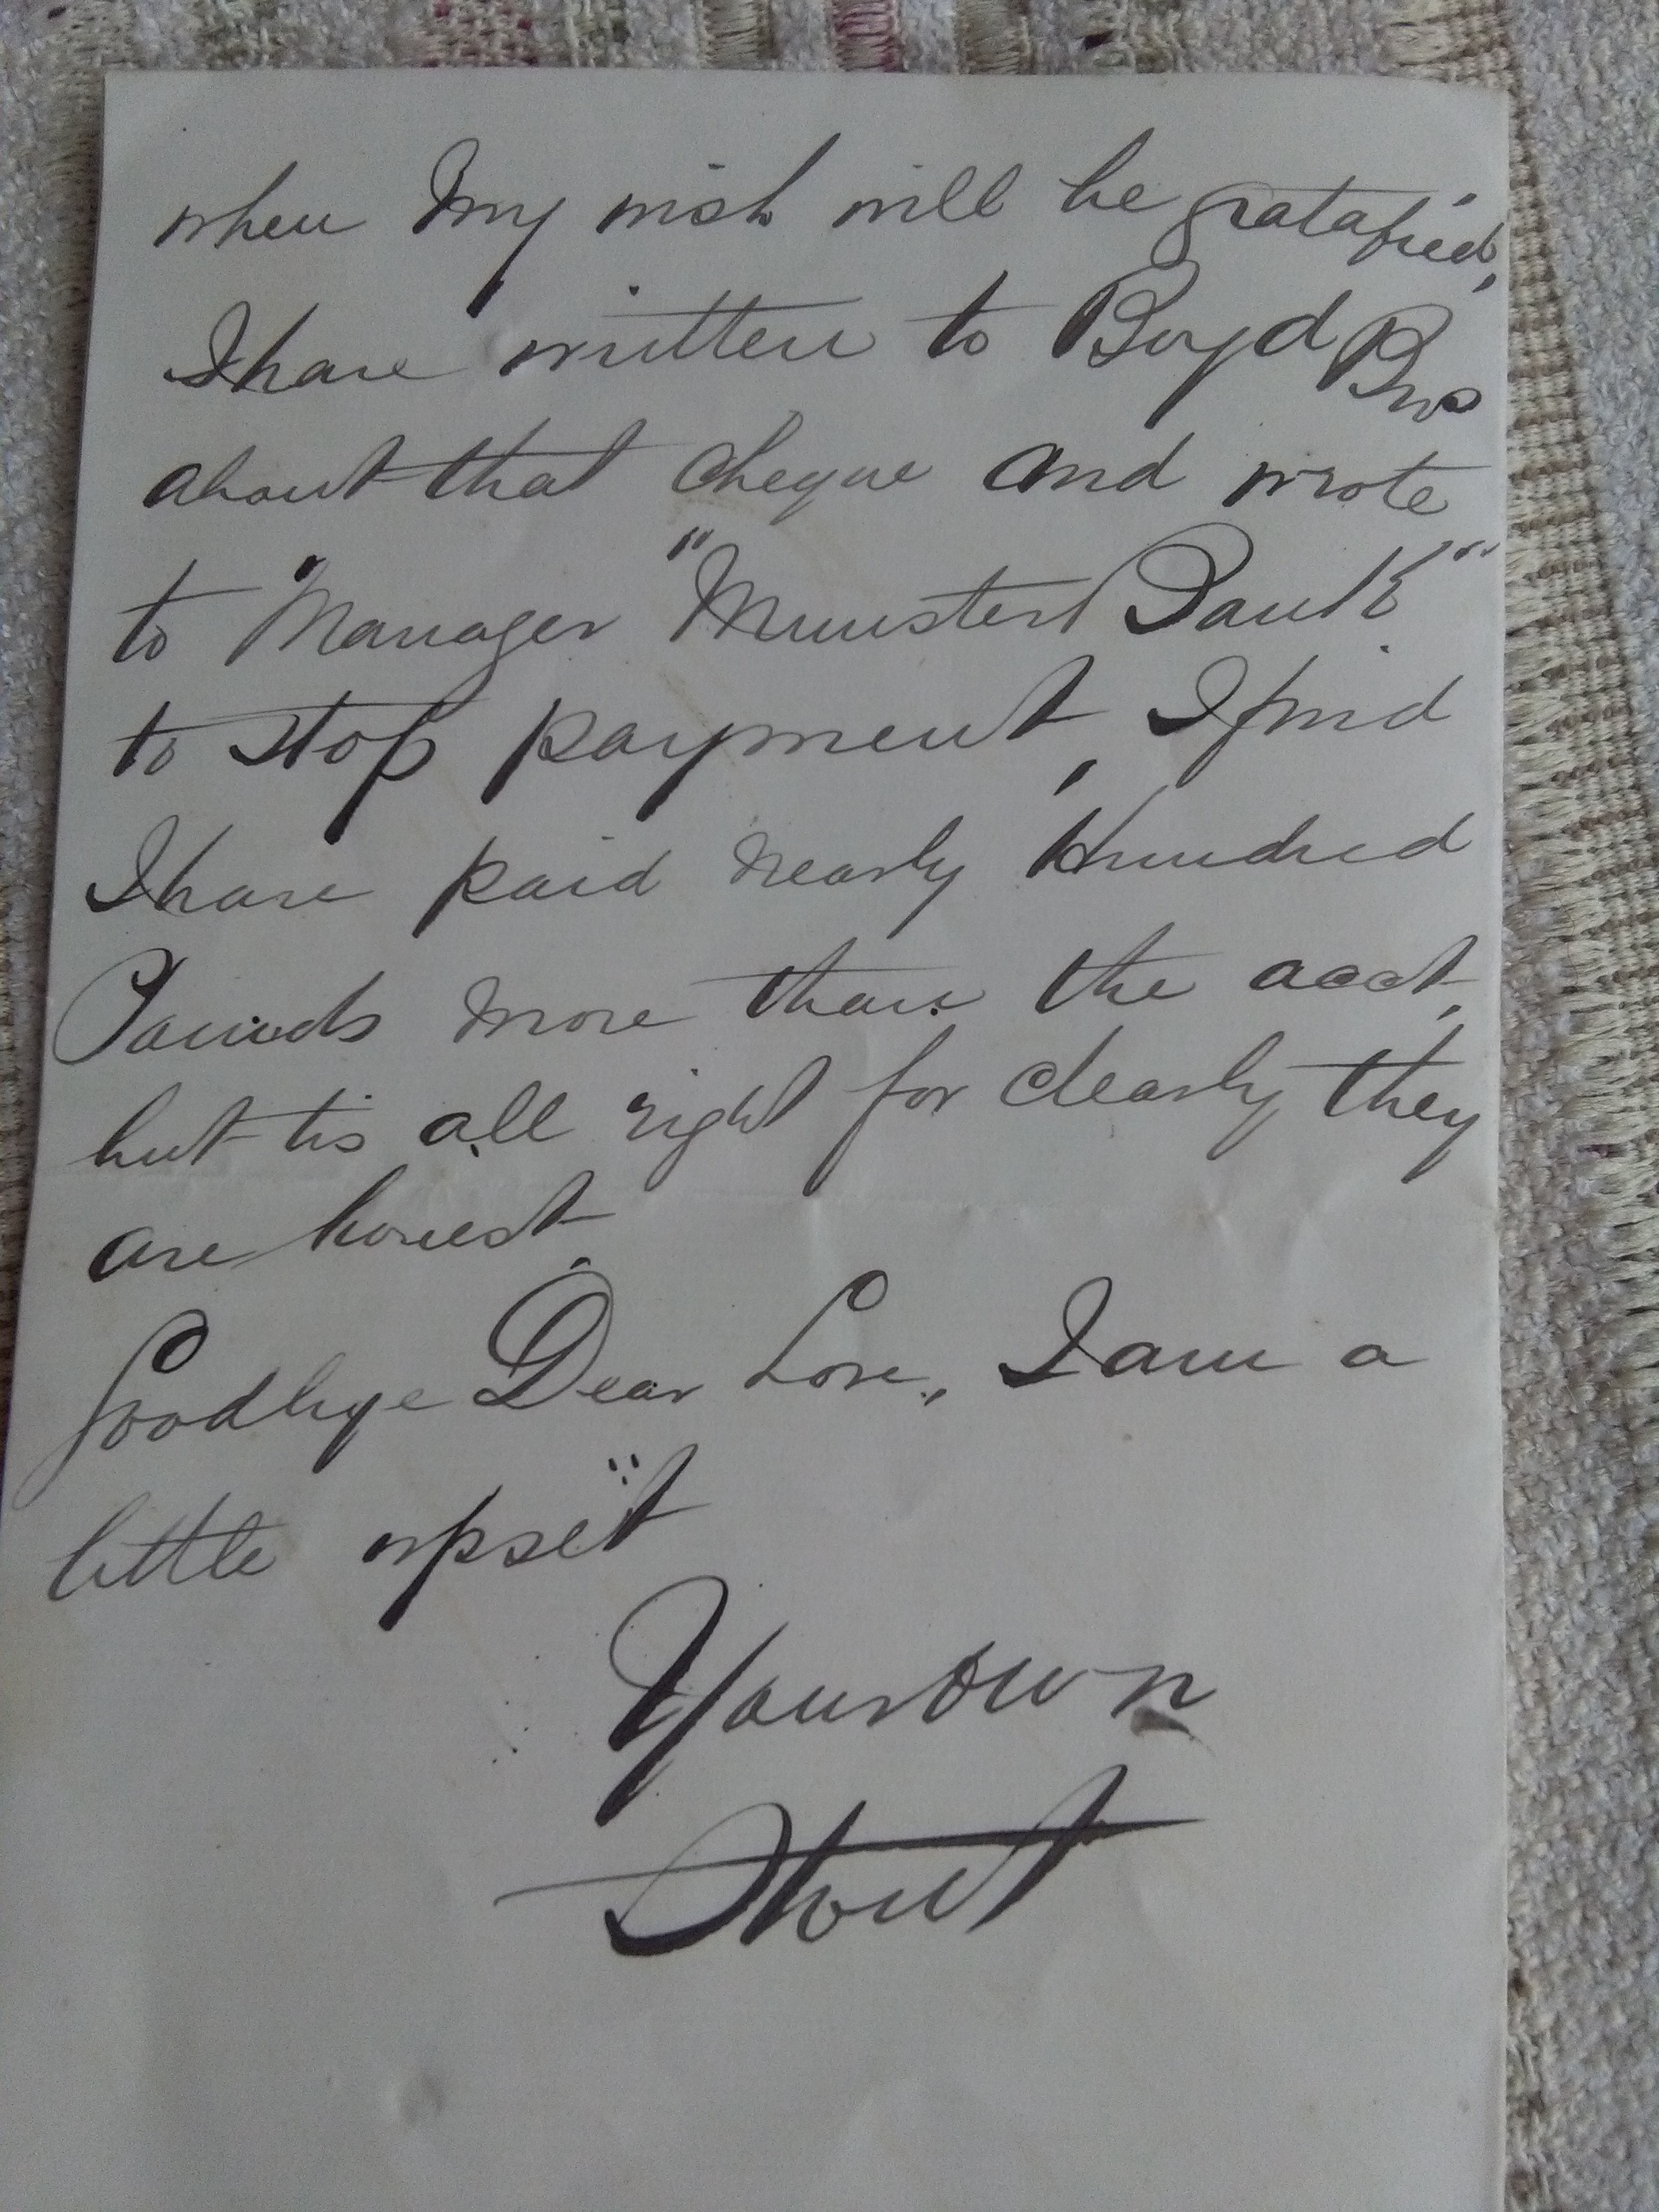 when My wish will be gratafied,
I have written to Boyd Bros
about that cheque and wrote
to Manager "Munster Bank"
to stop payment, I find
I have paid nearly Hundred
Pounds more than the acct,
but tis all right for clearly they
are honest.
Goodbye Dear Love, I am a
little upset
Your own
Stout